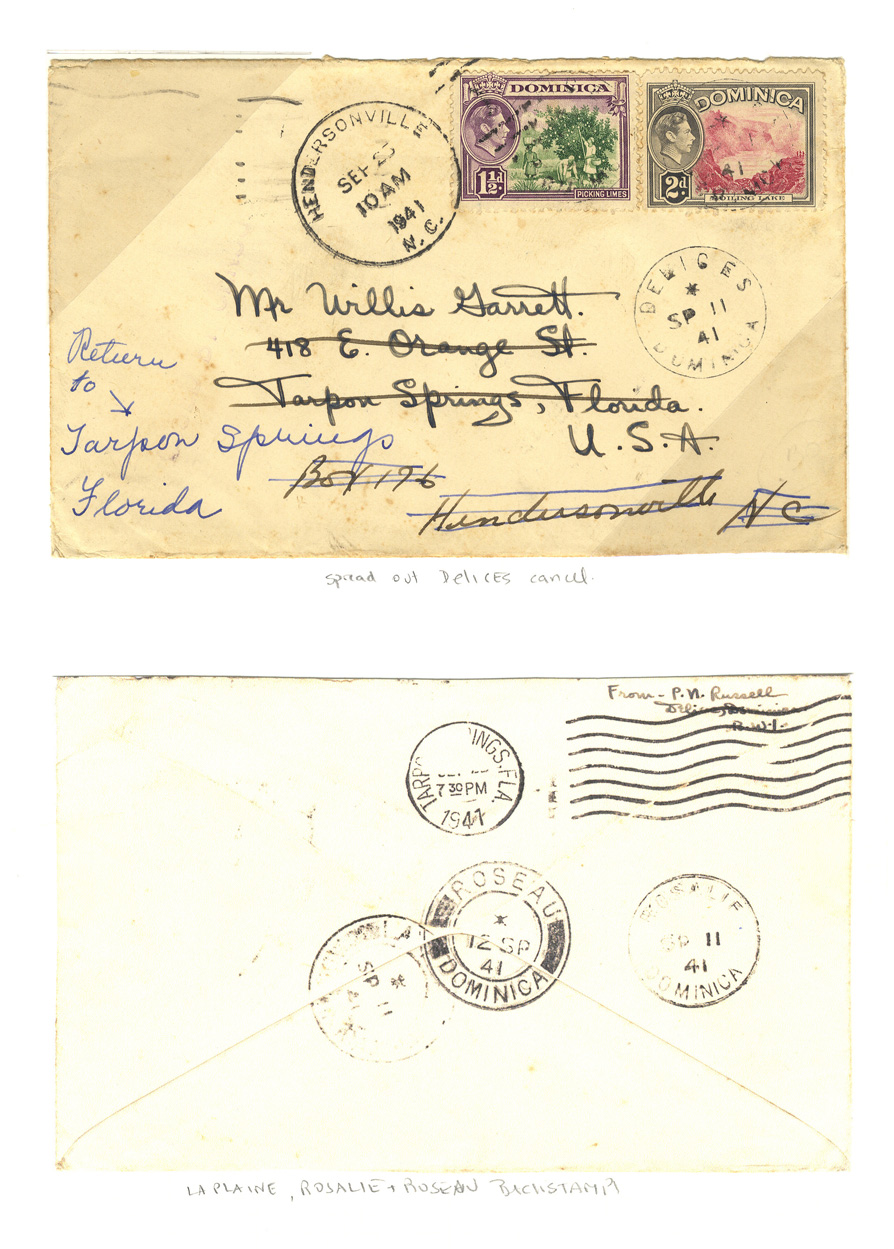 DOMINICA
1½d.
PICKING LIMES
DOMINICA
2d
BOILING LAKE
41
HENDERSONVILLE
SEP 23
10 AM
1941
N. C.
DELICES
*
SP 11
41
DOMINICA
Mr Willis Garrett.
418 E. Orange St.
Tarpon Springs, Florida.
U.S.A.
Return
to
Tarpon Springs
Florida
Box 196
Hendersonville N C
spread out DELICES cancel.
From - P. N. Russell
Delices, Dominica
B.W.I.
TARP INGS. FLA.
7 30 PM
1941
ROSEAU
*
12 SP
41
DOMINICA
ROSALIE
SP 11
41
DOMINICA
*
SP 11
41
LA PLAINE, ROSALIE + ROSEAU BACKSTAMP